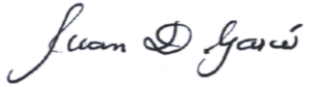 Juan D García